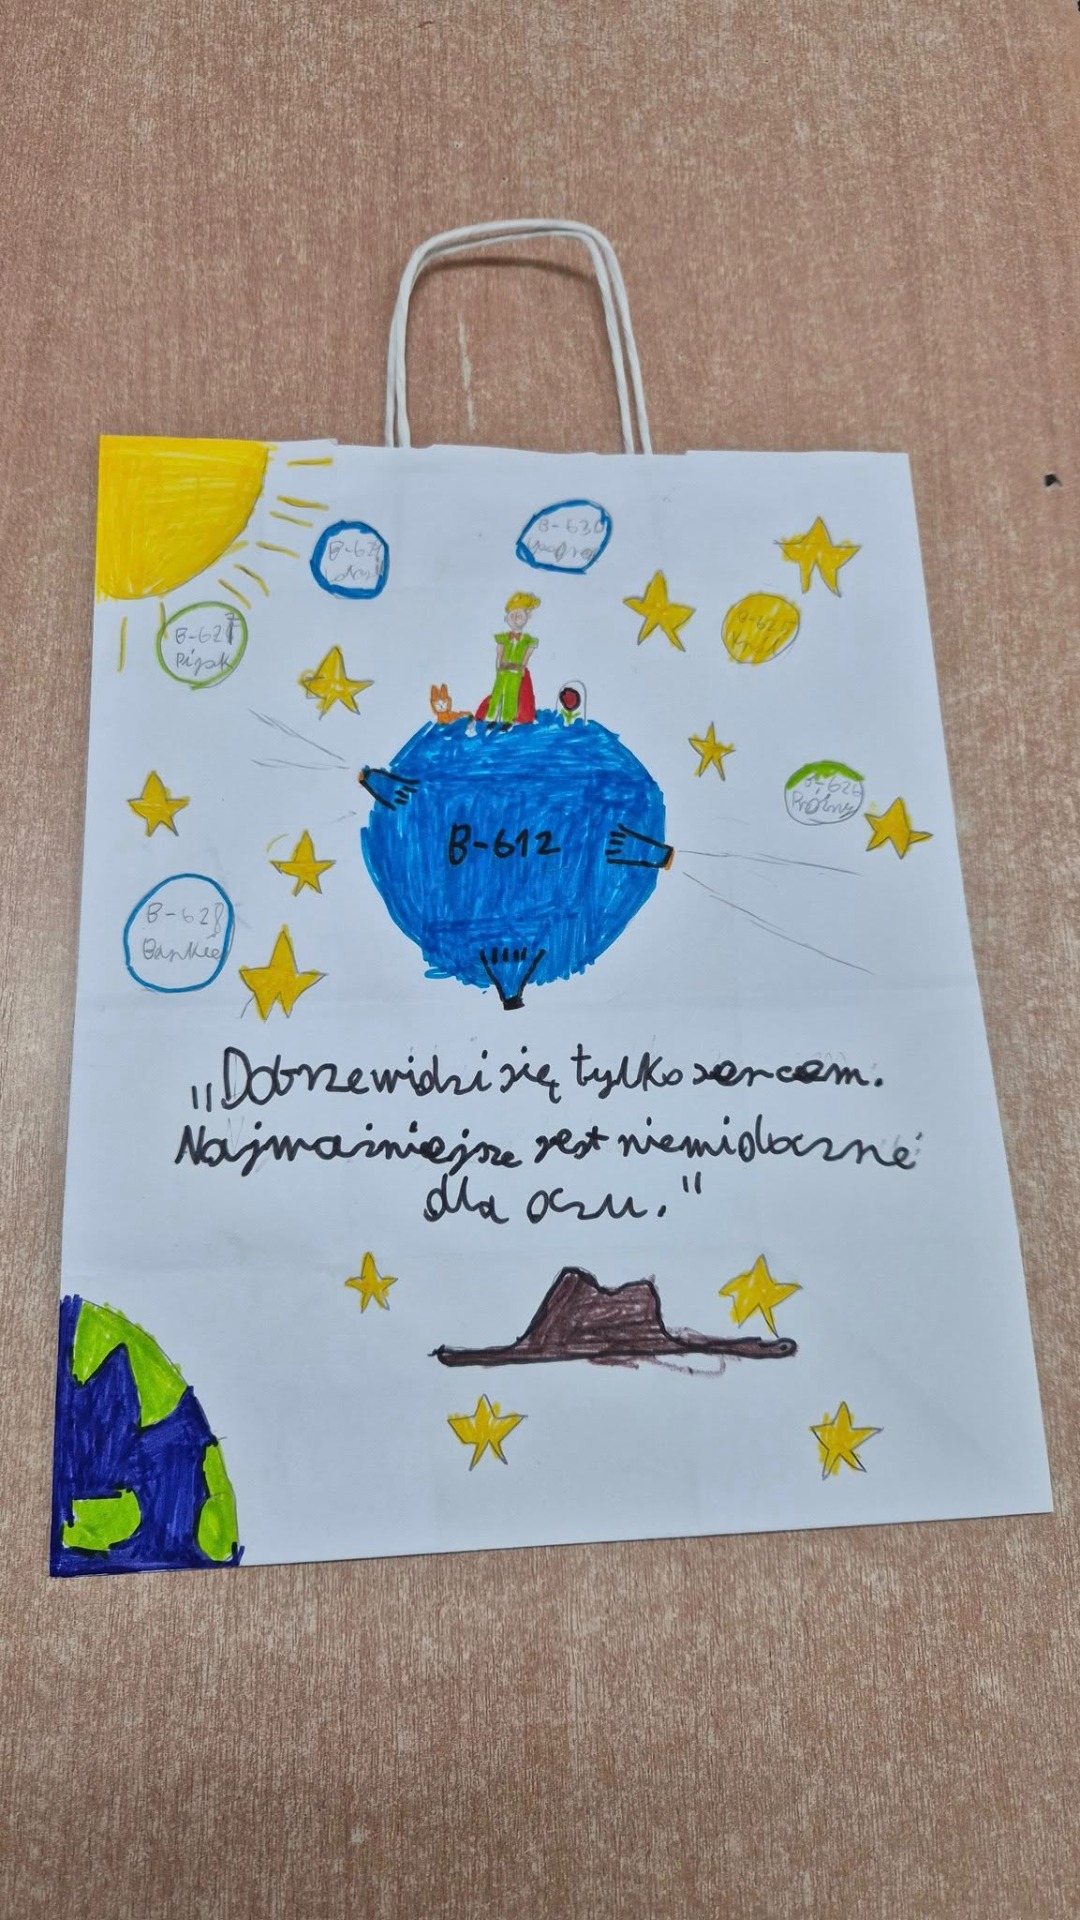 B-630
B-629
B-627
Pijak
B-625
B-626
Próżny
B-612
B-628
Bankie
„Dobrze widzi się tylko sercem.
Najważniejsze jest niewidoczne
dla oczu."